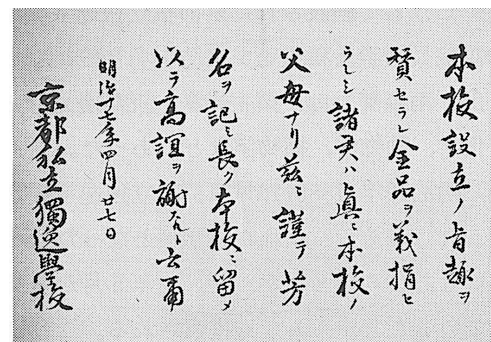 本校設立ノ旨趣ヲ
賛セラレ金品ヲ義捐セ
ラレシ諸君ハ眞ニ本校ノ
父母ナリ茲ニ謹テ芳
名ヲ記シ長ク本校ニ留メ
以テ高誼ヲ謝スルト云爾
明治十七年四月廿七日
京都私立獨逸學校